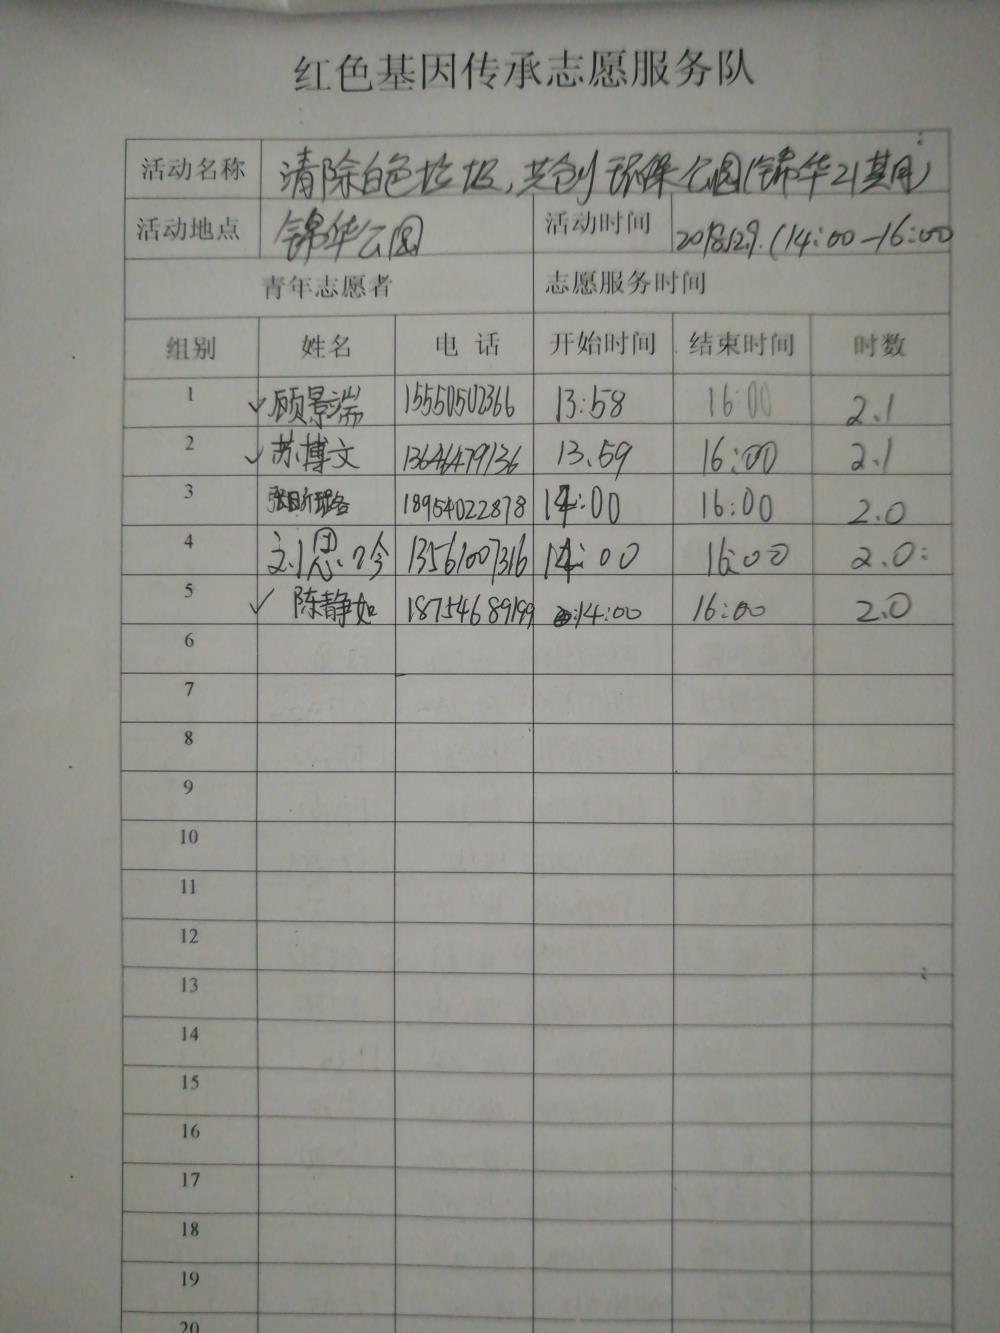 红色基因传承志愿服务队
活动名称 清除白色垃圾,共创环保公园(锦华21期)
活动地点 锦华公园 活动时间 2018.12.9.(14:00-16:00
青年志愿者 志愿服务时间
组别 姓名 电话 开始时间 结束时间 时数
1 ✓顾景瑞 15550502366 13:58 16:00 2.1
2 ✓苏博文 13646479136 13.59 16:00 2.1
3 18954022878 14:00 16:00 2.0
4 刘恩吟 13561007316 14:00 16:00 2.0
5 ✓陈静如 18754689199 14:00 16:00 2.0
6
7
8
9
10
11
12
13
14
15
16
17
18
19
20